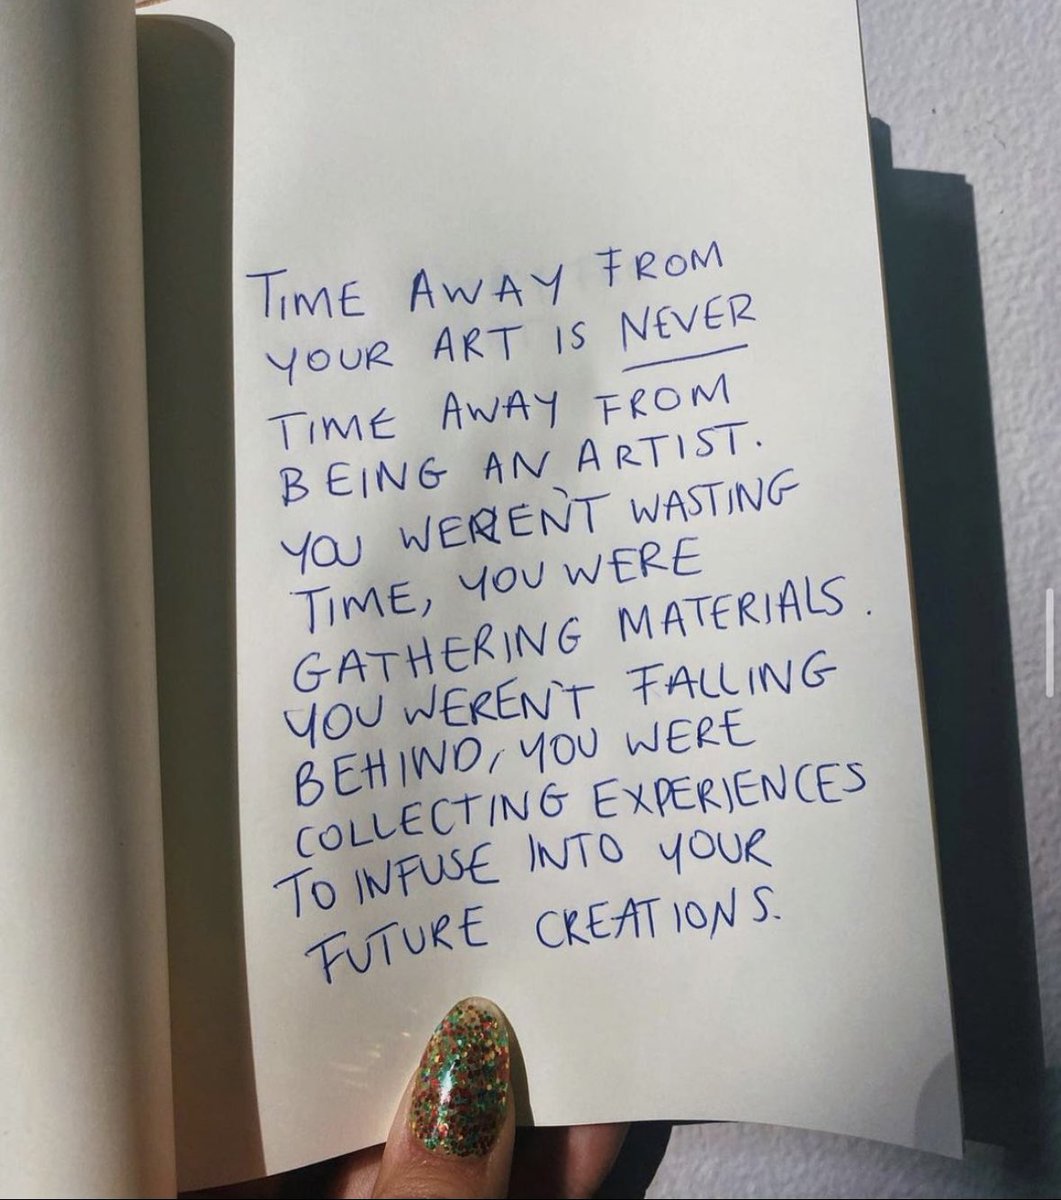 TIME AWAY FROM
YOUR ART IS NEVER
TIME AWAY FROM
BEING AN ARTIST.
YOU WEREN'T WASTING
TIME, YOU WERE
GATHERING MATERIALS.
YOU WEREN'T FALLING
BEHIND, YOU WERE
COLLECTING EXPERIENCES
TO INFUSE INTO YOUR
FUTURE CREATIONS.